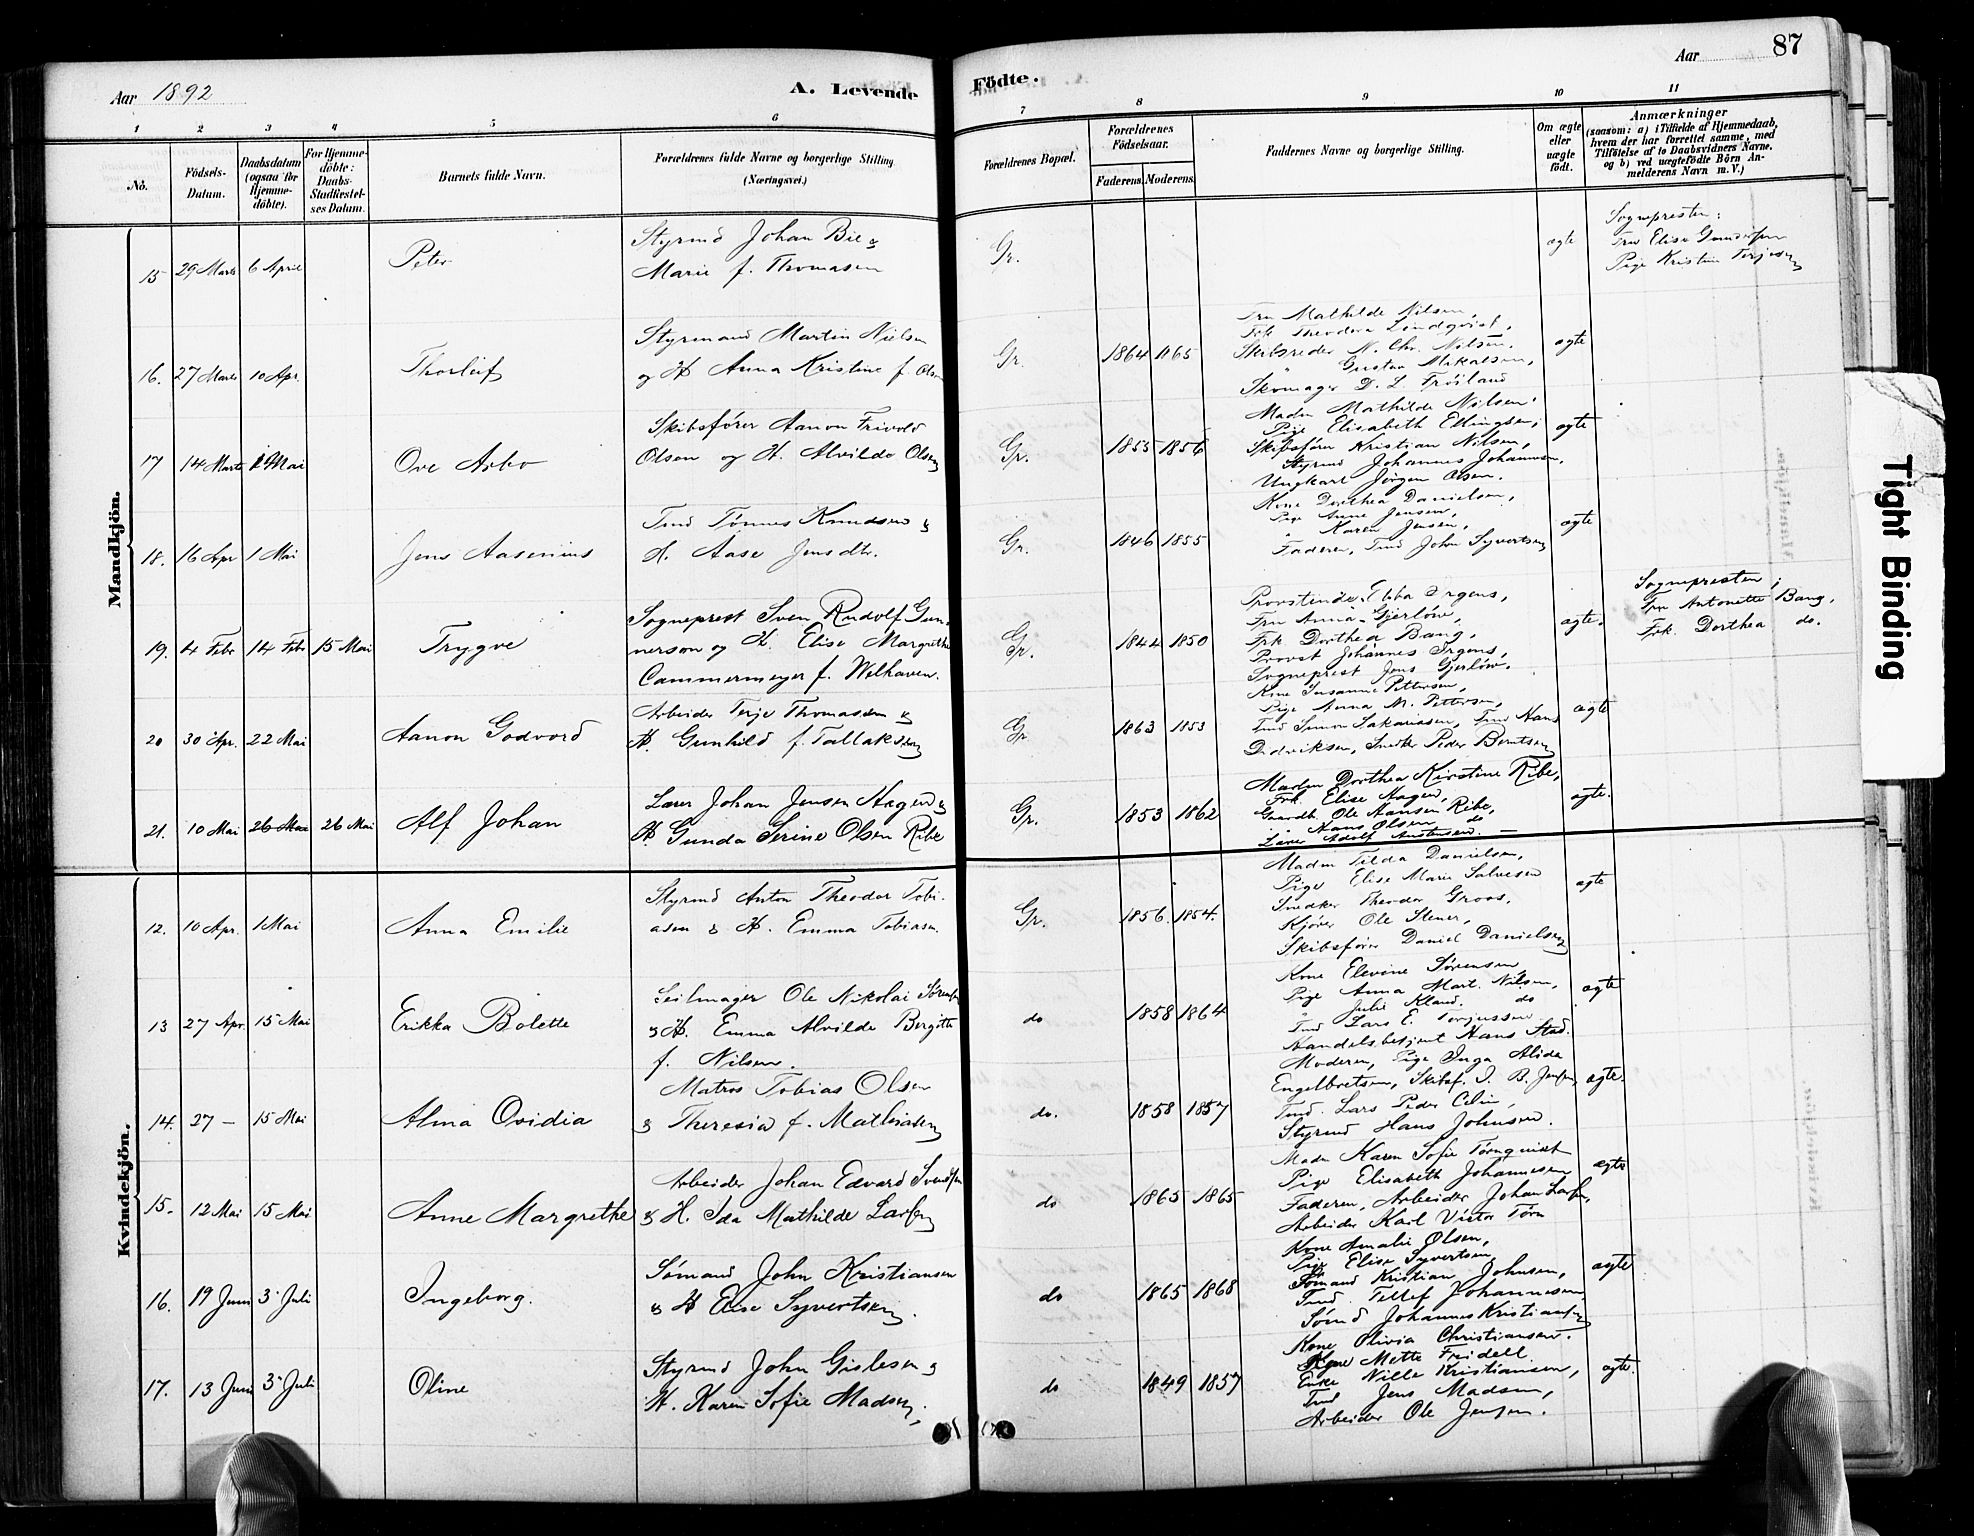 Aar 1892
A. Levende
Födte.
Aar
87
1 2 3 4 5 6 7 8 9 10 11
No.
Födsels-
Datum.
Daabsdatum
(ogsaa for
Hjemme-
döbte).
For Hjemme-
döbte:
Daabs-
Stadfæstel-
ses Datum.
Barnets fulde Navn.
Forældrenes fulde Navne og borgerlige Stilling
(Næringsvei.)
Forældrenes Bopæl.
Forældrenes
Födselsaar.
Faderens. Moderens.
Faddernes Navne og borgerlige Stilling.
Om ægte
eller
uægte
födt.
Anmærkninger
(saasom: a) i Tilfælde af Hjemmedaab,
hvem der har forrettet samme, med
Tilföielse af to Daabsvidners Navne,
og b) ved uægtefödte Börn An-
melderens Navn m. V.)
Mandkjön.
15 29 Marts 6 April
Peter
Styrmd Johan Bie &
Marie f. Thomasen
Gr.
ægte
Sognepresten:
Fru Elise Gundersen
Pige Kristin Terjesen
16. 27 Marts 10 Apr.
Thorleif
Styrmand Martin Nielsen
og H Anna Kristine f. Olsen
Gr.
1864 1165
Fru Mathilde Nilsen,
Frk Theodora Lindqvist,
Skibsreder N. Chr. Nilsen,
" Gustav Mikalsen,
Skomager D. L. Fröiland
ægte
17 14 Marts 1 Mai
Ove Arbo
Skibsfører Aanon Frivold
Olsen og H. Alvilde Olsen
Gr.
1855 1856
Madm Mathilde Nilsen,
Pige Elisabeth Ellingsen,
Skibsfører Kristian Nilsen,
Styrmd Johannes Johannesen,
Ungkarl Jørgen Olsen.
ægte
18. 16 Apr 1 Mai
Jens Aasenius
Tmd Tønnes Knudsen &
H. Aase Jensdtr.
Gr.
1846 1855
Kone Dorthea Danielsen,
Pige Anne Jensen,
" Karen Jensen,
Faderen, Tmd John Syvertsen
ægte
19. 4 Febr 14 Febr 15 Mai
Trygve
Sogneprest Sven Rudolf Gun-
nerson og H. Elise Margrethe
Cammermeyer f. Welhaven.
Gr.
1844 1850
Provstinde Ebba Irgens,
Fru Anna Gjerløw,
Frk Dorthea Bang,
Provst Johannes Irgens,
Sogneprest Jens Gjerløw.
ægte.
Sognepresten;
Fru Antonette Bang,
Frk. Dorthea do.
20 30 Apr. 22 Mai
Aanon Godvord
Arbeider Terje Thomassen &
H. Gunhild f. Tallaksen
Gr
1863 1853
Kone Susanne Pettersen,
Pige Anna M. Pettersen,
Tmd Simon Sakariasen, Tmd Hans
Didriksen, Snedker Peder Berntsen
ægte
21. 10 Mai 26 Mai 26 Mai
Alf Johan
Lærer Johan Jensen Hagen &
H. Gunda Serine Olsen Ribe
Gr.
1853 1862
Madm Dorthea Kirstine Ribe,
Frk. Elise Hagen,
Gaardb. Ole Hansen Ribe,
" Hans Olsen do
Lærer Adolf Austensen. —
ægte.
Kvindekjön.
12. 10 Apr. 1 Mai
Anna Emilie
Styrmd Anton Theodor Tobi-
asen & H. Emma Tobiasen
Gr.
1856. 1854.
Madm Tilda Danielsen,
Pige Elise Marie Salvesen
Snedker Theodor Groos,
Kjører Ole Stener,
Skibsfører Daniel Danielsen
ægte
13 27 Apr. 15 Mai
Erikka Bolette
Seilmager Ole Nikolai Sørensen
& H. Emma Alvilde Bergitte
f. Nilsen.
do
1858 1864
Kone Elevine Sørensen
Pige Anna Mart. Nilsen,
" Julie Kland. do
Tmd Lars E. Torjussen
Handelsbetjent Hans Stad.
ægte
14. 27 — 15 Mai
Alma Ovidia
Matros Tobias Olsen
& Theresia f. Mathiasen
do.
1858 1857
Moderen, Pige Inga Alida
Engelbretsen, Skibsf. J. B. Jensen,
Tmd. Lars Peder Celin,
Styrmd Hans Johnsen.
ægte.
15. 12 Mai 15 Mai
Anne Margrethe
Arbeider Johan Edvard Svendsen
& H. Ida Mathilde Larsen
do
1865 1865
Madm Karen Sofie Törnqvist
Pige Elisabeth Johannesen
Faderen, Arbeider Johan Larsen,
Arbeider Karl Victor Törn
ægte
16. 19 Juni 3 Juli
Ingeborg.
Sømand John Kristiansen
& H Elise Syvertsen
do
1865 1868
Kone Amalie Olsen,
Pige Elise Syvertsen
Sømand Kristian Johnsen,
Tmd. Tellef Johannesen
Sømd Johannes Kristiansen
ægte
17. 13 Juni 3 Juli
Oline
Styrmd John Gislesen &
H. Karen Sofie Madsen,
do
1849 1857
Kone Olivia Christiansen.
Kone Mette Freidell.
Enke Nille Kristiansen,
Tmd Jens Madsen,
Arbeider Ole Jensen.
ægte.
Tight Binding